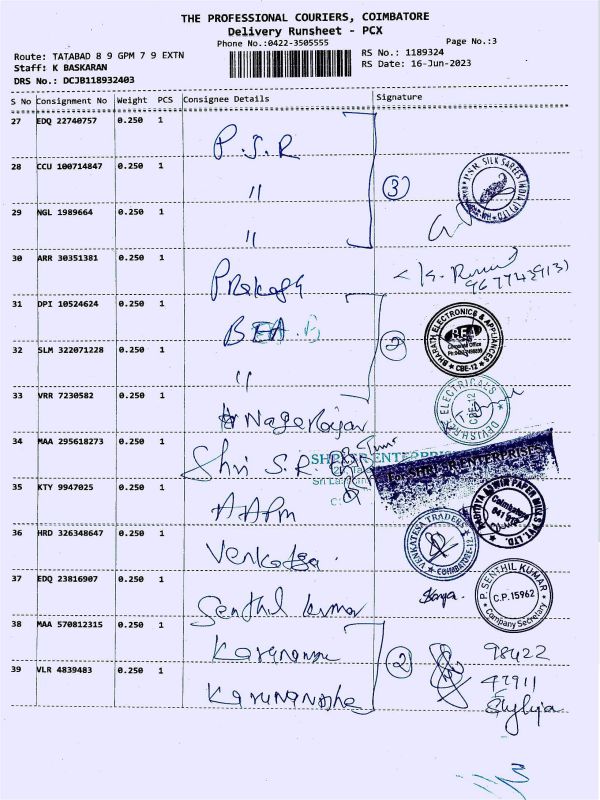 THE PROFESSIONAL COURIERS, COIMBATORE
Delivery Runsheet - PCX
Phone No.:0422-3505555
Page No.:3
Route: TATABAD 8 9 GPM 7 9 EXTN
RS No.: 1189324
Staff: K BASKARAN
RS Date: 16-Jun-2023
DRS No.: DCJB118932403
S No Consignment No Weight PCS Consignee Details Signature
27 EDQ 22740757 0.250 1
P.S.R
28 CCU 100714847 0.250 1
"
3
PSR SILK SAREES INDIA (P) LTD
29 NGL 1989664 0.250 1
"
30 ARR 30351381 0.250 1
Prakash
31 DPI 10524624 0.250 1
BEA
2
BHARATH ELECTRONICS & APPLIANCES
BEA
CBE-12
32 SLM 322071228 0.250 1
"
33 VRR 7230582 0.250 1
ELECTRICALS
CBE-12
34 MAA 295618273 0.250 1
Shri S.R.
For SHRI SR ENTERPRISES
35 KTY 9947025 0.250 1
AADITYA ASWIN PAPER MILLS PVT. LTD.
Coimbatore
36 HRD 326348647 0.250 1
VENKATESA TRADERS
COIMBATORE
37 EDQ 23816907 0.250 1
Senthil Kumar
P. SENTHIL KUMAR
C.P. 15962
Company Secretary
38 MAA 570812315 0.250 1
2
98422
39 VLR 4839483 0.250 1
47911